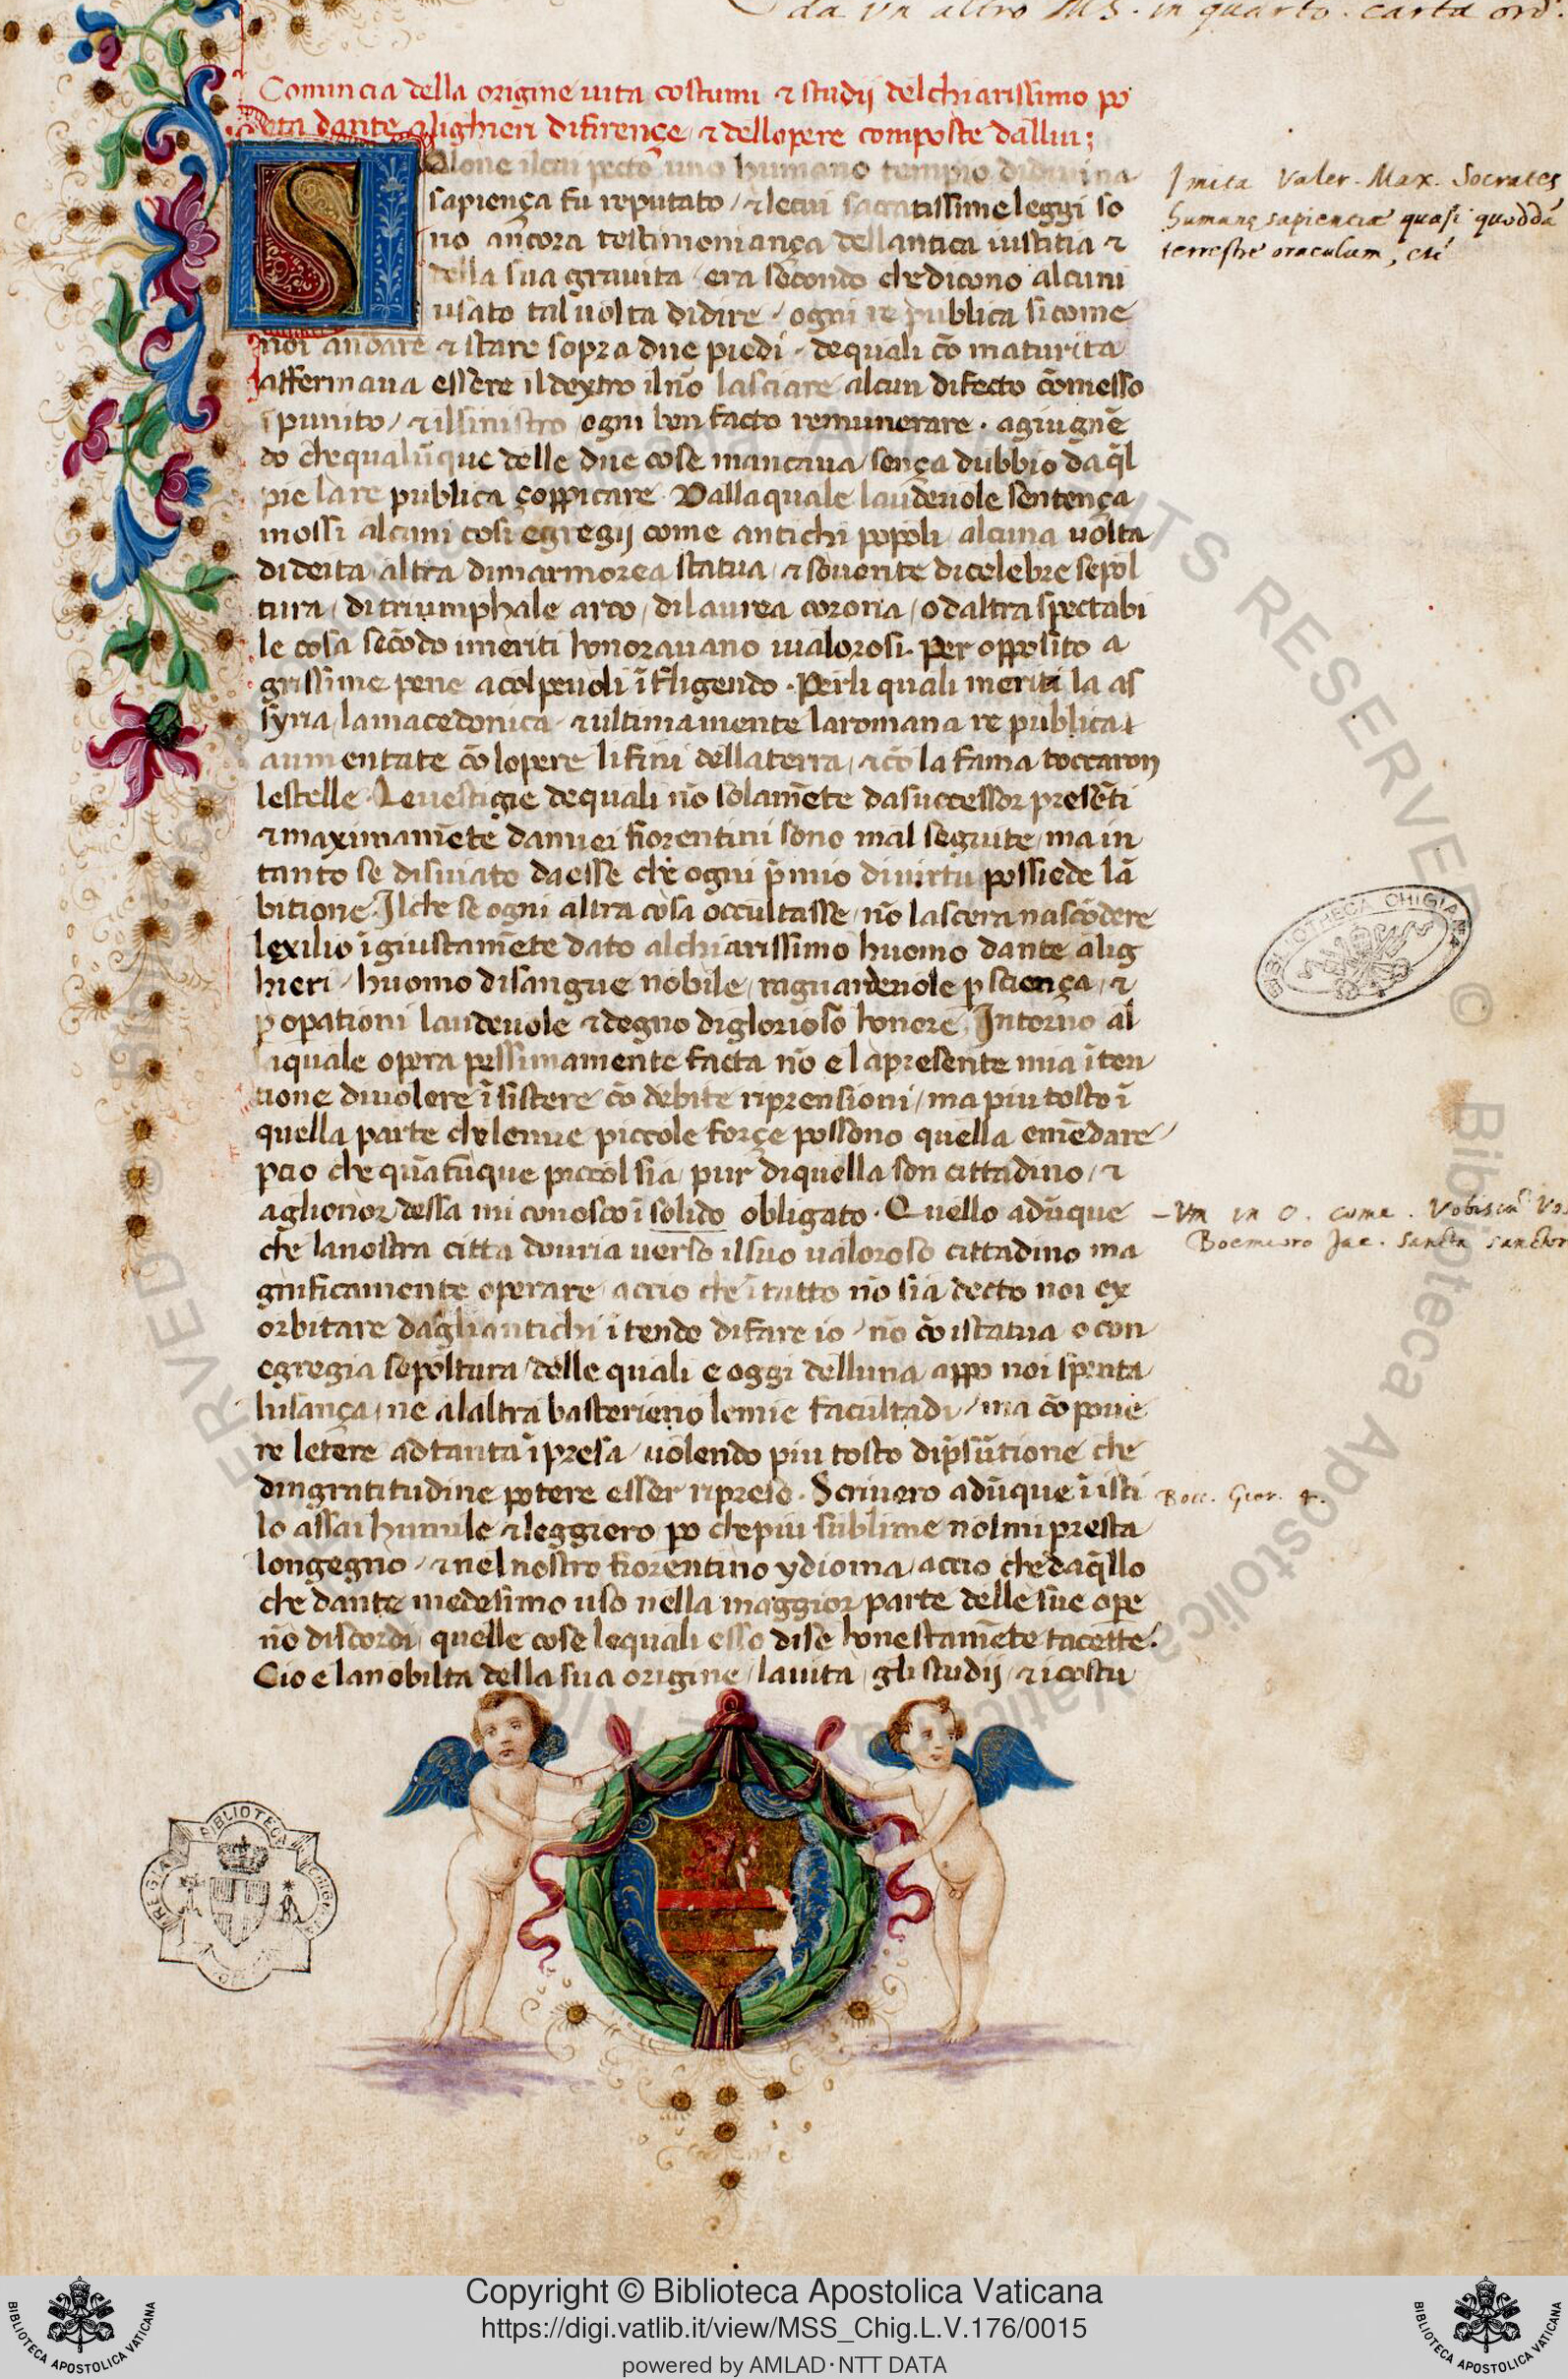 da vn altro MS. in quarto. carta ord:
Comincia della origine uita costumi ⁊ studij del chiarissimo po
eta dante alighieri di firençe, ⁊ dellopere composte dallui;
Solone il cui pecto uno humano tempio di diuina
sapiença fu reputato, ⁊ le cui sacratissime leggi so
no ancora testimoniança dell antica iustitia ⁊
della sua grauita, era secondo che dicono alcuni
usato tal uolta di dire, ogni re publica si come
noi andare ⁊ stare sopra due piedi, de quali cō maturita
affermaua essere il dextro il nō lasciare alcun difecto cōmesso
ipunito, ⁊ il sinistro ogni ben facto remunerare. agiugnē
do che qualūque delle due cose mancaua, sença dubbio da q̄l
pie la re publica çoppicare. Dalla quale laudeuole sentença
mossi alcuni cosi egregij come antichi popoli, alcuna uolta
di deita, altra di marmorea statua, ⁊ souente di celebre sepol
tura, di triumphale arco, di laurea corona, o daltra spectabi
le cosa secōdo i meriti honorauano i ualorosi. Per opposito a
grissime pene a colpeuoli īfligendo. Per li quali meriti la as
syria, la macedonica, ⁊ ultimamente la romana re publica
aumentate cō lopere li fini della terra, ⁊ cō la fama toccaron
le stelle. Le uestigie de quali nō solamēte da successor presēti
⁊ maximamēte da miei fiorentini sono mal seguite, ma in
tanto se disuiato da esse che ogni p̄mio di uirtu possiede lā
bitione. Il che se ogni altra cosa occultasse, nō lascera nascōdere
lexilio īgiustamēte dato al chiarissimo huomo dante alig
hieri, huomo di sangue nobile, raguardeuole p̱ sciença, ⁊
p̱ op̱ationi laudeuole ⁊ degno di glorioso honore. Intorno al
la quale opera pessimamente facta nō e la presente mia īten
tione di uolere īsistere cō debite riprensioni, ma piu tosto ī
quella parte che le mie piccole forçe possono quella emēdare
p̱cio che quātūque piccol sia, pur di quella son cittadino, ⁊
agli onor dessa mi conosco ī solido obligato. Quello adūque
che la nostra citta douria uerso il suo ualoroso cittadino ma
gnificamente operare, accio che ī tutto nō sia decto noi ex
orbitare dagli antichi ītendo di fare io, nō cō istatua o con
egregia sepoltura, delle quali e oggi delluna appo noi spenta
lusança, ne a laltra basterieno le mie facultadi, ma cō poue
re letere ad tanta īpresa, uolendo piu tosto di p̄sūtione che
dingratitudine potere esser ripreso. Scriuero adūque ī isti
lo assai humile ⁊ leggiero, po che piu sublime nol mi presta
longegno, ⁊ nel nostro fiorentino ydioma, accio che da q̄llo
che dante medesimo uso nella maggior parte delle sue ope
nō discordi, quelle cose le quali esso di se honestamēte tacette.
Cio e la nobilta della sua origine, la uita, gli studij, ⁊ i costu
Imita Valer. Max. Socrates
humanę sapientiae quasi quoddā
terrestre oraculum, etc
Vm in O. come. Vobiscū
Boemioro Jac. sancta sanctor
Bocc. Gior. 4.
BIBLIOTHECA CHIGIANA
BIBLIOTECA
Copyright © Biblioteca Apostolica Vaticana
https://digi.vatlib.it/view/MSS_Chig.L.V.176/0015
powered by AMLAD·NTT DATA
BIBLIOTECA APOSTOLICA VATICANA
BIBLIOTECA APOSTOLICA VATICANA